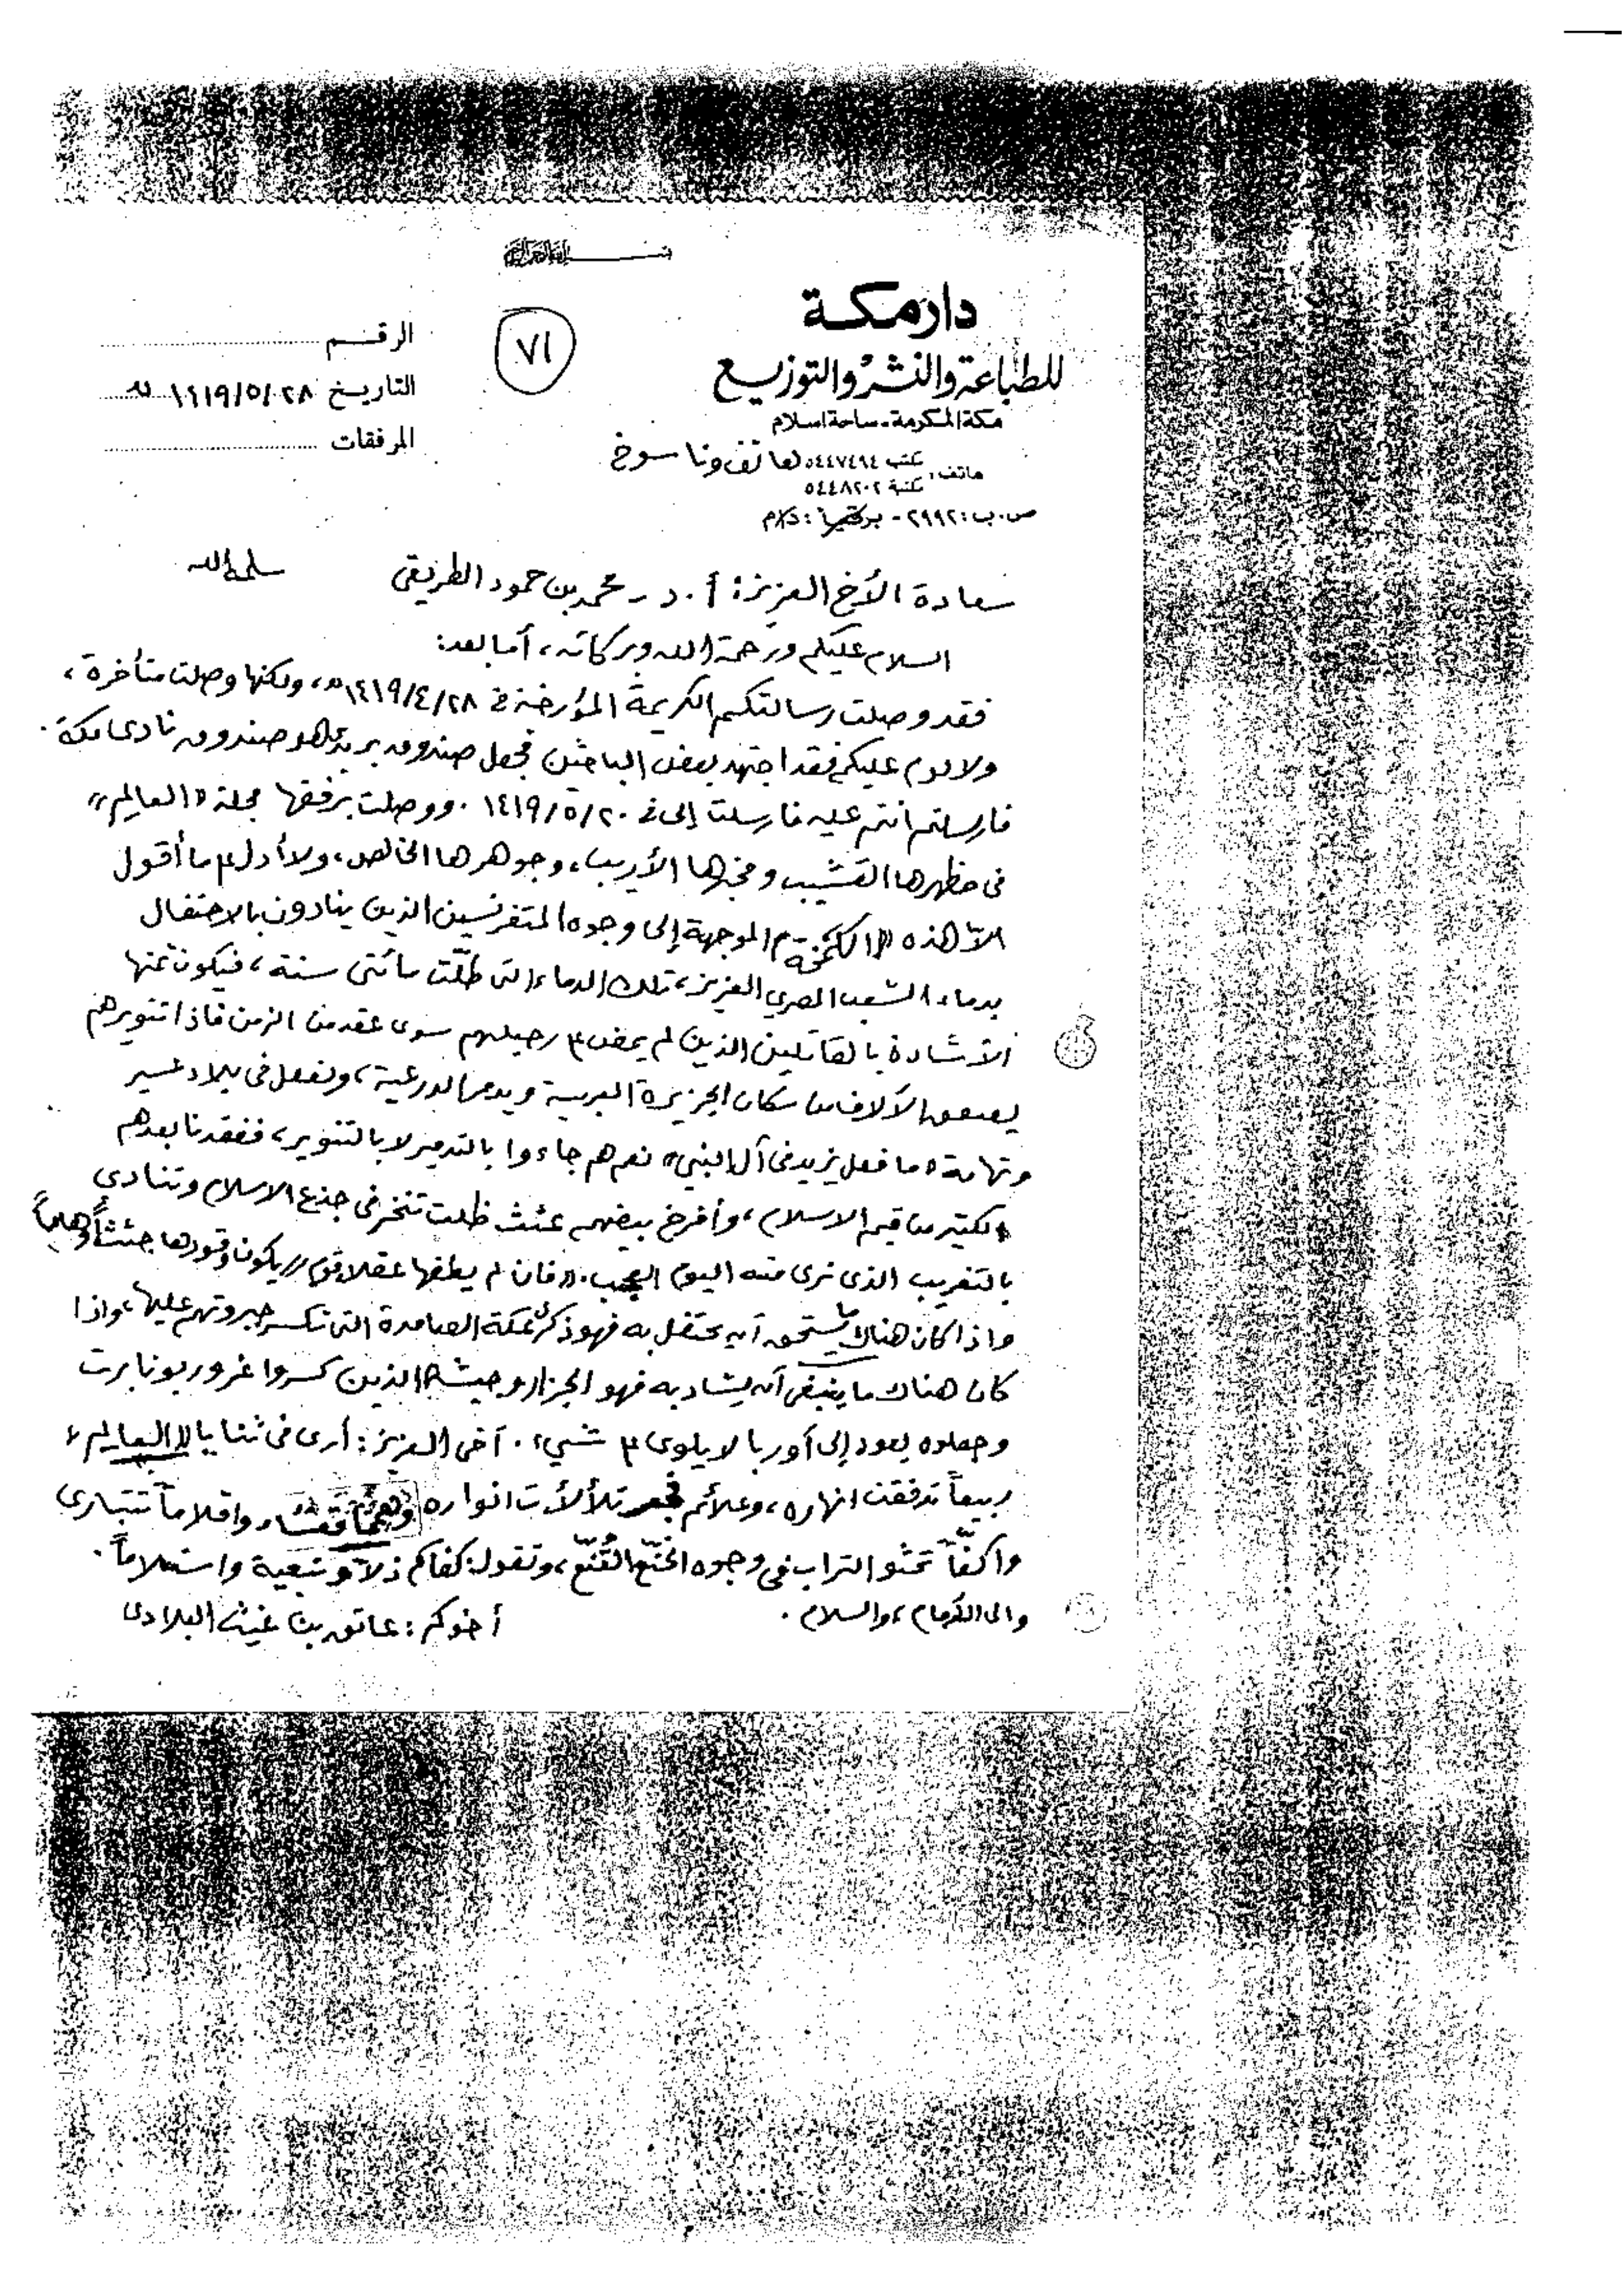 بسم الله الرحمن الرحيم
دار مكة
للطباعة والنشر والتوزيع
مكة المكرمة - ساحة اسلام
هاتف: مكتب ٥٤٤٧٤٩٤ هاتف وناسوخ
مكتبة ٥٤٤٨٢٠٢
ص.ب: ٢٩٩٢ - برقيا: دكام
٧١
الرقم
التاريخ ٢٨/٥/١٤١٩هـ
المرفقات
سعادة الأخ العزيز: أ.د - محمد بن حمود الطريقي سلمه الله
السلام عليكم ورحمة الله وبركاته، أما بعد:
فقد وصلت رسالتكم الكريمة المؤرخة في ٢٨/٤/١٤١٩هـ، ولكنها وصلت متأخرة،
ولا لوم عليكم فقد اجتهد بعض الباحثين فجعل صندوق بريدي هو صندوق نادي مكة.
فارسلتم انتم عليه فارسلت إلى في ٢٠/٥/١٤١٩. ووصلت برفقها مجلة «العالم»
في مظهرها القشيب ومخبرها الأريب، وجوهرها الخالص، ولا أدل على ما أقول
الاّ هذه الموجهة إلى وجوه المتفرنسين الذين ينادون بالاحتفال
بدماء الشعب المصري العزيز، تلك الدماء التي طلّت مائتي سنة، فيكون ثمنها
الاشادة بالقاتلين الذين لم يمض على رحيلهم سوى عقد من الزمن فاذا تنويرهم
يعصف الآلاف من سكان الجزيرة العربية ويدمر الدرعية، وتفعل في بلاد عسير
وتهامة «ما فعل يزيد في آل النبي» نعم هم جاءوا بالتدمير لا بالتنوير، ففقدنا بعدهم
الكثير من قيم الاسلام، وأفرخ بيضهم عثث ظلت تنخر في جذع الاسلام وتنادى
بالتغريب الذي نرى منه اليوم العجب. «فان لم يطفها عقلاء قوم» يكون وقودها جثثاً وهاماً
واذا كان هناك ما يستحق أن يحتفل به فهو ذكرى عكة الصامدة التي تكسر جبروتهم عليها، واذا
كان هناك ما ينبغي أن يشاد به فهو الجزار وجيشه الذين كسروا غرور بونابرت
وجعلوه يعود إلى أوربا لا يلوى على شيء. أخي العزيز: أرى في ثنايا «العالم»
ربيعاً تدفقت انهاره، وعلائم فجر تلألأت انواره وهمماً قعساء واقلاماً تتبارى
واكفّاً تحثو التراب في وجوه الخنّع القُنّع، وتقول: كفاكم ذلاً وتبعية واستسلاماً.
والى الأمام، والسلام. أخوكم: عاتق بن غيث البلادي